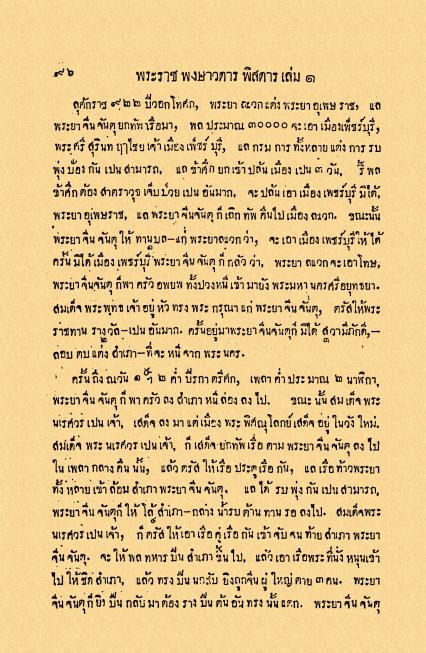 ๙๖ พระราช พงษาวดาร พิสดาร เล่ม ๑
ลุศักราช ๙๒๒ ปีวอกโทศก, พระยา ลแวกแต่ง พระยา อุเทษ ราช, แล
พระยา จีน จันตุ ยกทัพ เรือมา, พล ประมาณ ๓๐๐๐๐ จะ เอา เมืองเพ็ชร์บุรี,
พระศรี สุรินท ฦๅไชย เจ้า เมืองเพ็ชร์ บุรี, แล กรม การ ทั้งหลาย แต่ง การ รบ
พุ่ง ป้อง กัน เปน สามารถ, แล ข้าศึก ยก เข้า ปล้น เมือง เปน ๓ วัน, รี้ พล
ข้าศึก ต้อง สาตราวุธ เจ็บ ป่วย เปน อันมาก, จะ ปล้น เอา เมือง เพชร์บุรี มิได้,
พระยา อุเทษราช, แล พระยา จีนจันตุ ก็ เลิก ทัพ คืน ไป เมือง ลแวก. ขณะนั้น
พระยา จีน จันตุ ให้ ทานบล–แก่ พระยาลแวก ว่า, จะ เอา เมือง เพ็ชร์บุรี ให้ ได้
ครั้น มิได้ เมือง เพ็ชร์บุรี พระยา จีน จันตุ ก็ กลัว ว่า, พระยา ลแวก จะ เอาโทษ,
พระยา จีนจันตุ ก็ พา ครัว อพยพ ทั้งปวง หนี เข้า มา ยัง พระมหา นครศรีอยุทธยา.
สมเด็จ พระ พุทธ เจ้า อยู่ หัว ทรง พระ กรุณา แก่ พระยา จีน จันตุ, ตรัสให้พระ
ราชทาน รางวัล–เปน อันมาก. ครั้นอยู่มาพระยา จีนจันตุก็ มิได้ สวามีภักดิ์,–
ลอบ ตบ แต่ง สำเภา–ที่จะ หนี จาก พระ นคร.
ครั้น ถึง ณวัน ๑ ๒ ค่ำ ปีรกา ตรีศก, เพลา ค่ำ ประมาณ ๒ นาฬิกา,
พระยา จีน จันตุ ก็ พา ครัว ลง สำเภา หนี ล่อง ลง ไป. ขณะ นั้น สมเด็จ พระ
นเรศวร เปน เจ้า, เสด็จ ลง มา แต่ เมือง พระ พิศณุโลกย์ เสด็จ อยู่ ในวัง ใหม่.
สมเด็จ พระ นเรศวร เปน เจ้า, ก็ เสด็จ ยกทัพ เรือ ตาม พระยา จีน จันตุ ลง ไป
ใน เพลา กลาง คืน นั้น, แล้ว ตรัส ให้ เรือ ประตู เรือ กัน, แล เรือ ท้าวพระยา
ทั้ง หลาย เข้า ล้อม สำเภา พระยา จีน จันตุ. แล ได้ รบ พุ่ง กัน เปน สามารถ,
พระยา จีน จันตุก็ ให้ โล้ สำเภา–กลาง น้ำรบ ต้าน ทาน รอ ลงไป. สมเด็จพระ
นเรศวร เปน เจ้า, ก็ ตรัส ให้ เอา เรือ คู่ เรือ กัน เข้า จับ จน ท้าย สำเภา พระยา
จีน จันตุ. จะ ให้ พล ทหาร ปีน สำเภา ขึ้น ไป, แล้ว เอา เรือพระ ที่นั่ง หนุนเข้า
ไป ให้ ชิด สำเภา, แล้ว ทรง ปืน นกสับ ยิงถูกจีน ผู้ ใหญ่ ตาย ๓ คน. พระยา
จีน จันตุ ก็ ยิง ปืน กลับ มา ต้อง ราง ปืน ต้น อัน ทรง นั้น แตก. พระยา จีน จันตุ